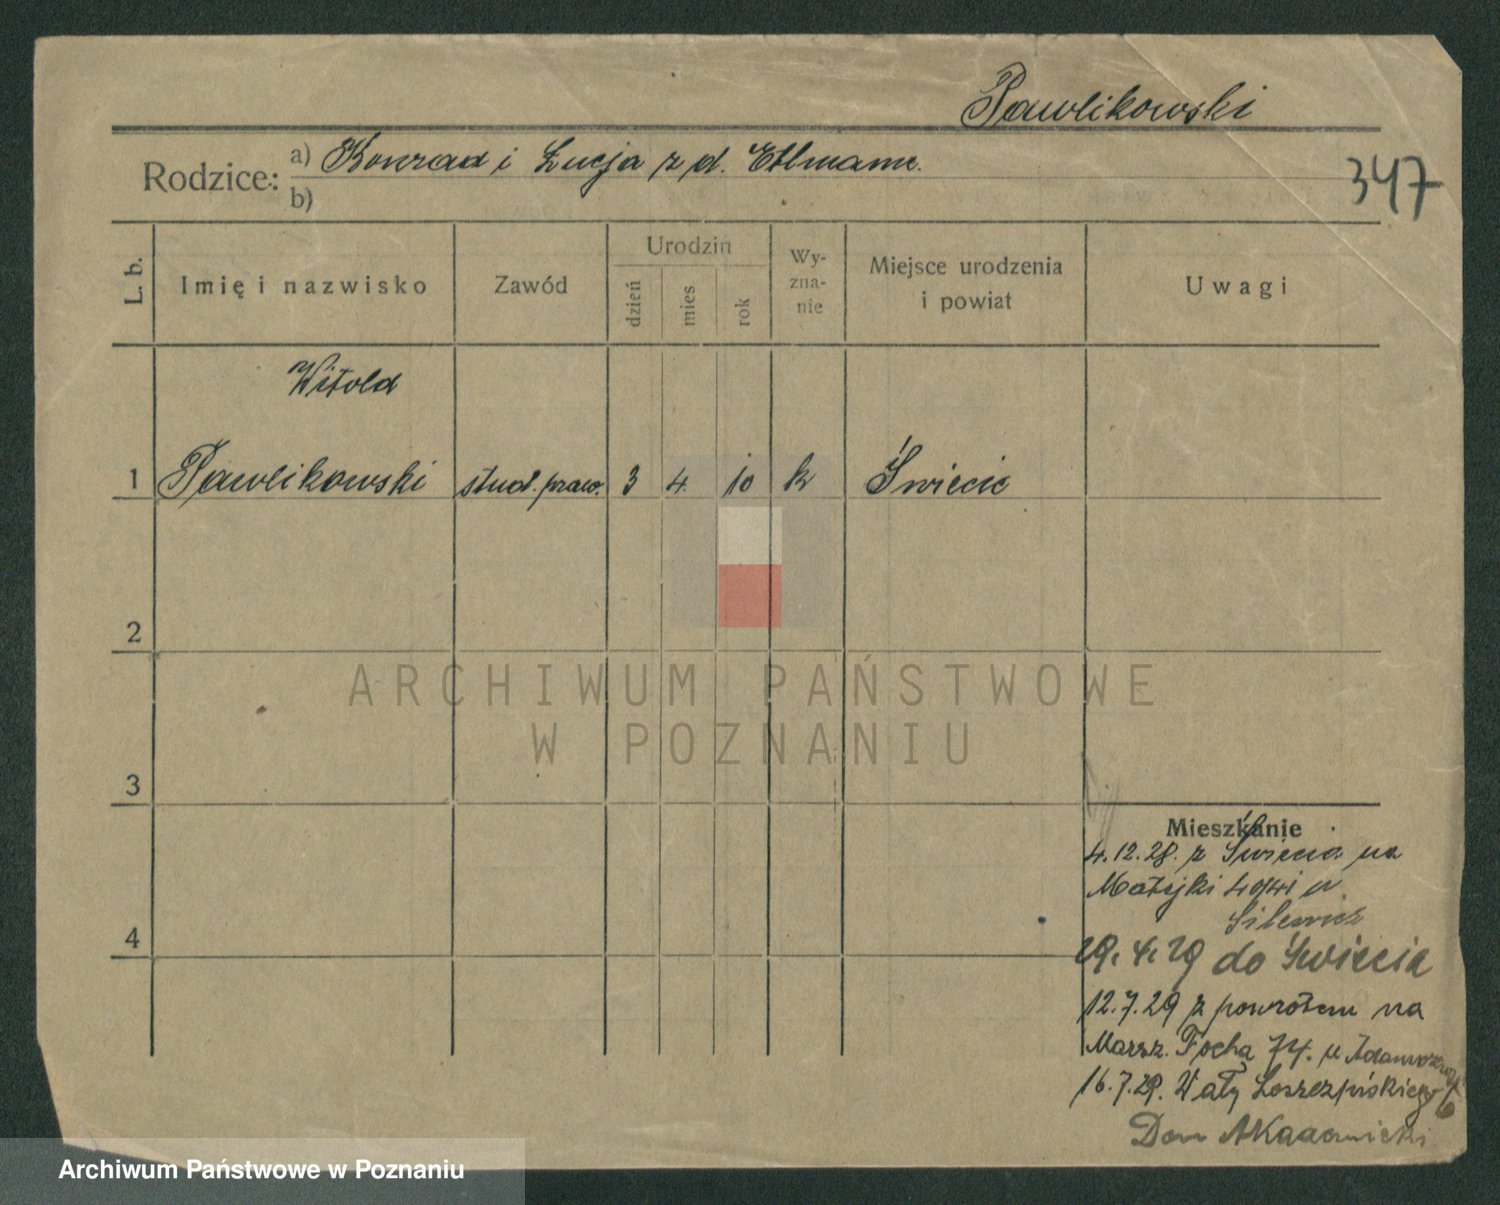 Pawlikowski
Rodzice: a) Konrad i Łucja z d. Etlmann.
b)
347
L. b. Imię i nazwisko Zawód Urodzin dzień mies rok Wyznanie Miejsce urodzenia i powiat Uwagi
Witold
1 Pawlikowski stud. praw. 3 4. 10 k Świecie
2
ARCHIWUM PAŃSTWOWE
W POZNANIU
3
Mieszkanie
4.12.28. z Świecia na
Matejki u
4
29.4.29 do Świecia
12.7.29 z powrotem na
Marsz. Focha 74. u
16.7.29. Wały Leszczyńskiego 6
Dom Akademicki
Archiwum Państwowe w Poznaniu